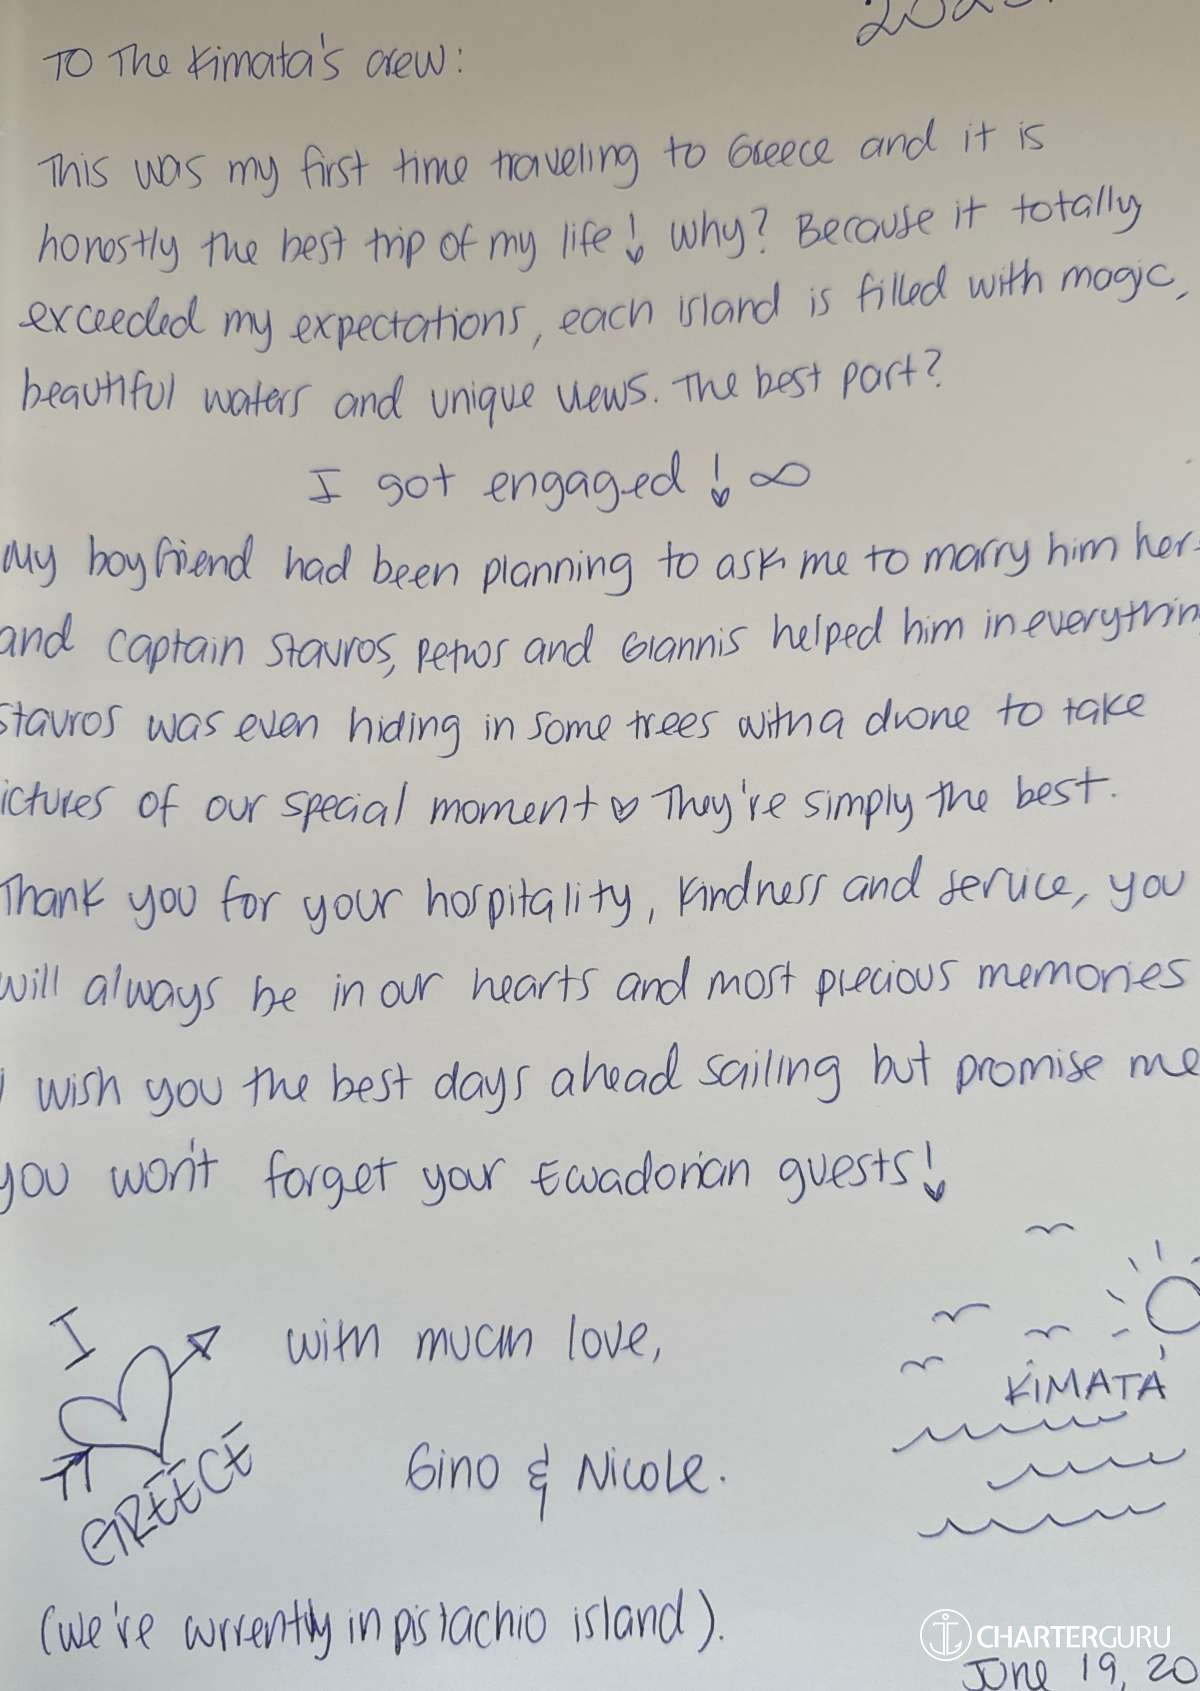 To The Kimata's crew:
This was my first time traveling to Greece and it is
honostly the best trip of my life! Why? Because it totally
exceeded my expectations, each island is filled with magic,
beautiful waters and unique views. The best part?
I got engaged! ∞
My boyfriend had been planning to ask me to marry him her
and captain Stavros, Petros and Giannis helped him in everythin
Stavros was even hiding in some trees with a drone to take
ictures of our special moment ♡ They're simply the best.
Thank you for your hospitality, kindness and service, you
will always be in our hearts and most precious memories
I wish you the best days ahead sailing but promise me
you won't forget your Ecuadorian guests!
I
GREECE
with much love,
Gino & Nicole.
KiMATA
(we're currently in pistachio island).
CHARTERGURU
June 19, 20